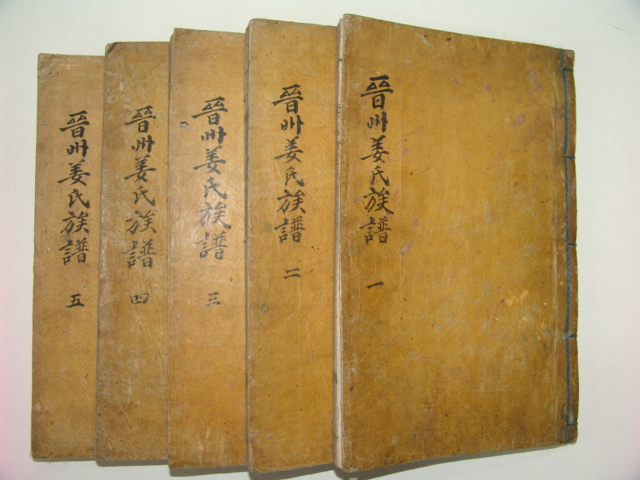 晉州姜氏族譜 一
晉州姜氏族譜 二
晉州姜氏族譜 三
晉州姜氏族譜 四
晉州姜氏族譜 五